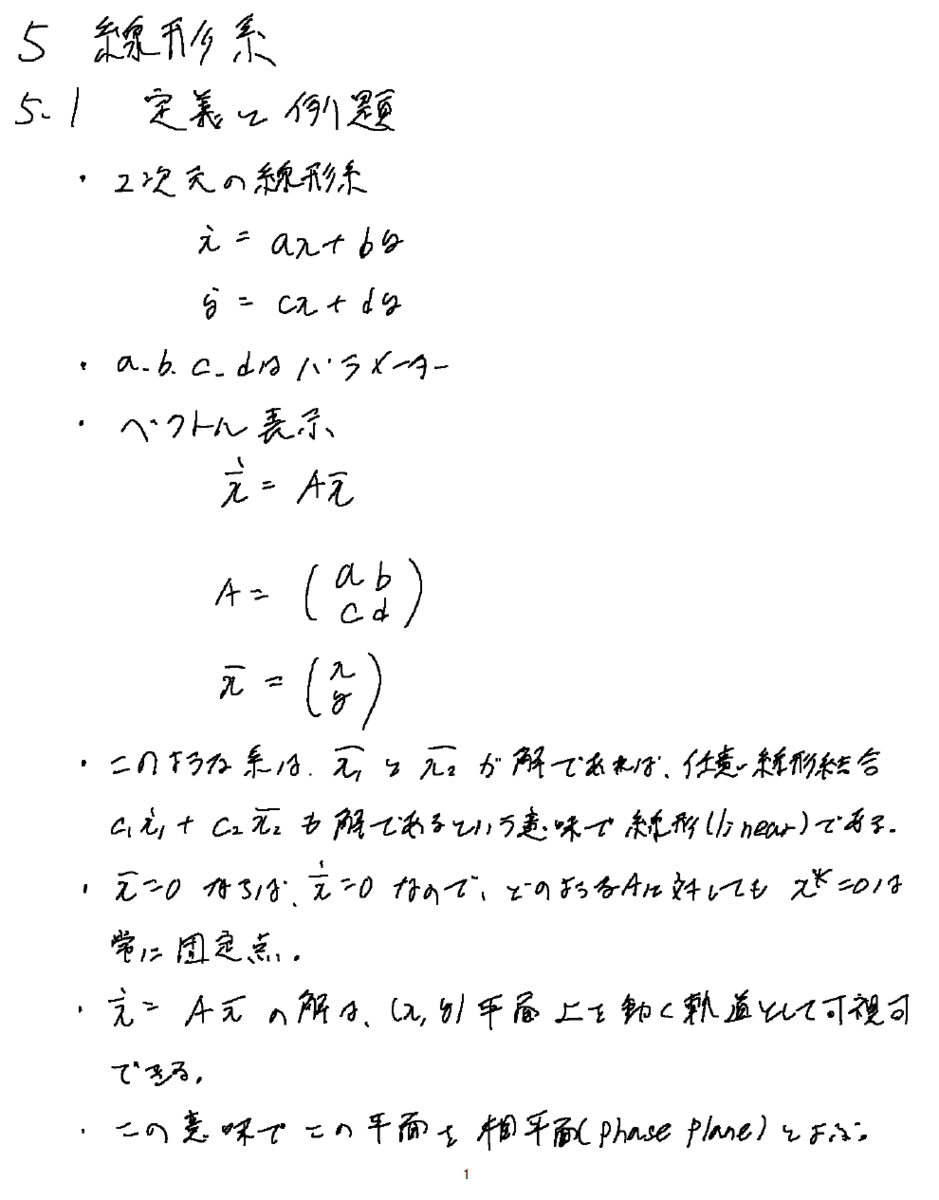 5 線形系
5.1 定義と例題
・2次元の線形系
ẋ = ax + by
ẏ = cx + dy
・a. b. c. dはパラメーター
・ベクトル表示
x̄̇ = Ax̄
A = (a b
c d)
x̄ = (x
y)
・このような系は、x̄₁とx̄₂が解であれば、任意の線形結合
c₁x̄₁ + c₂x̄₂も解であるという意味で線形(linear)である。
・x̄=0 ならば、x̄̇=0 なので、どのようなAに対しても x*=0は
常に固定点。
・x̄̇ = Ax̄ の解は、(x, y)平面上を動く軌道として可視可
できる。
・この意味でこの平面を相平面(phase plane)とよぶ。
1